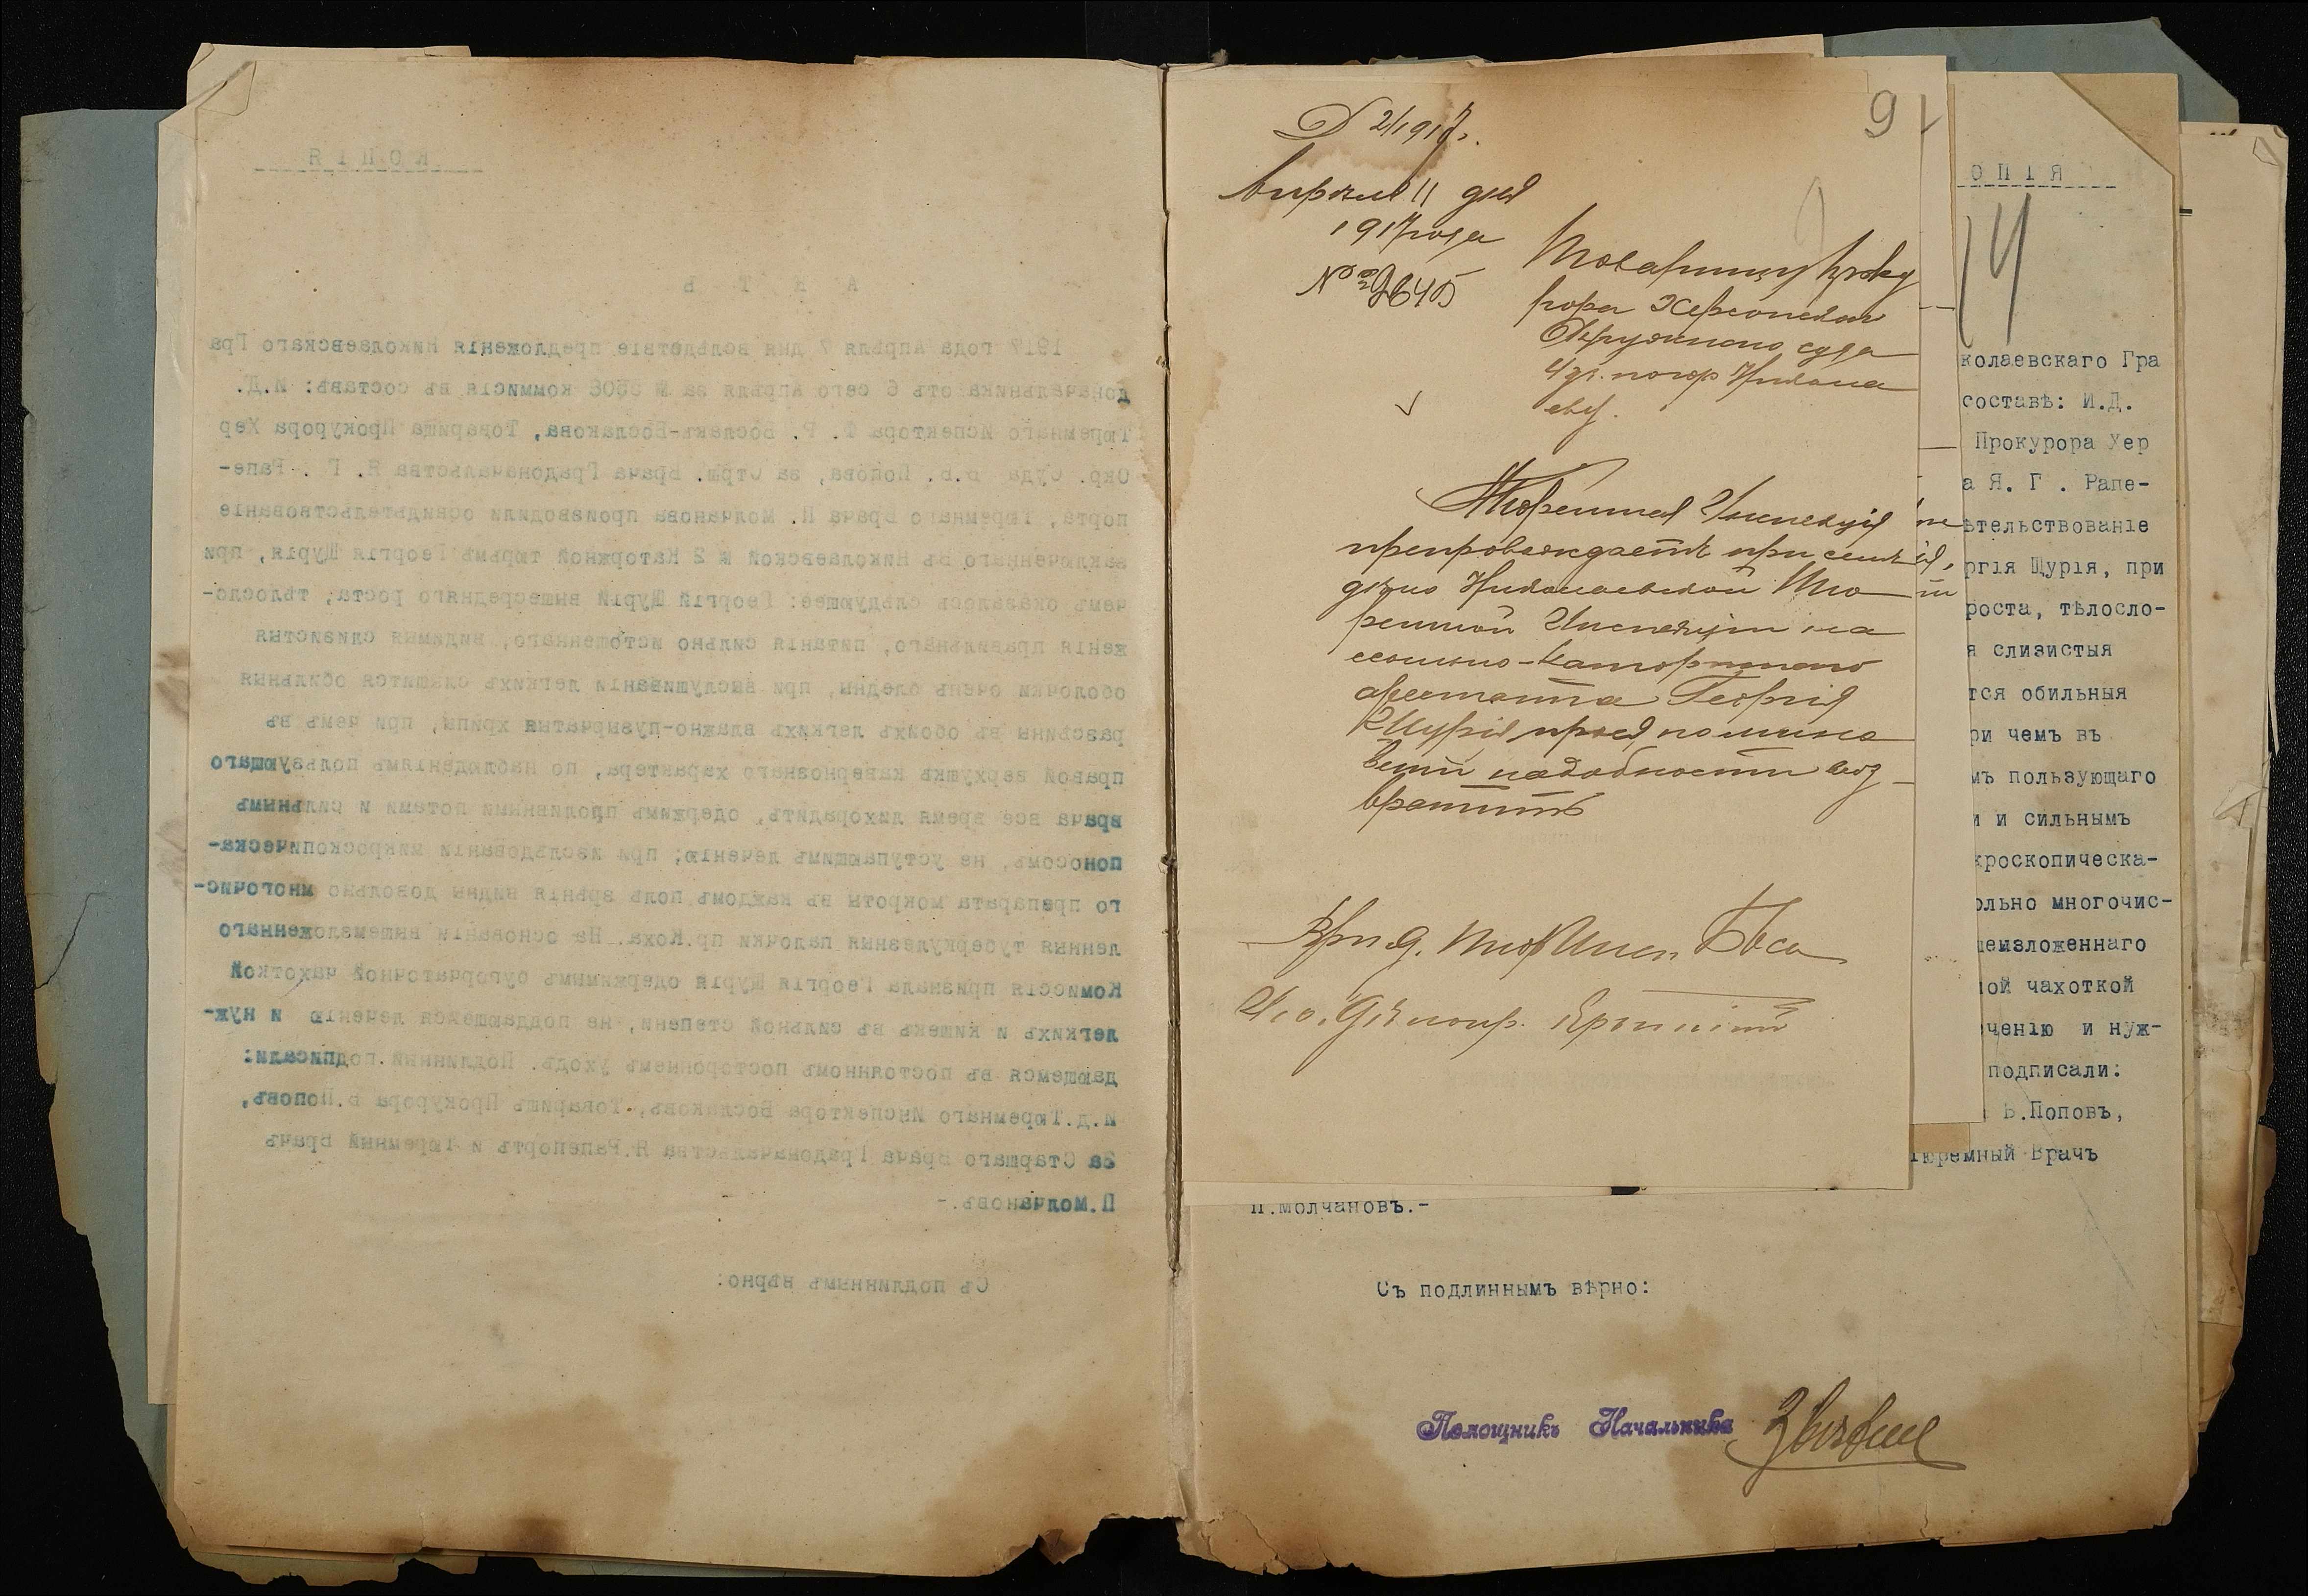 КОПІЯ
А К Т Ъ
1917 года Апрѣля 7 дня вслѣдствіе предложенія Николаевскаго Гра
доначальника отъ 6 сего Апрѣля за № коммисія въ составѣ: И.Д.
Тюремнаго Испектора Ф. Р. Бослакова, Товарища Прокурора Хер
Окр. Суда В.Б. Попова, за Стрш. Врача Градоначальства Я. Г . Рапе-
порта, Тюремнаго Врача П. Молчанова производили освидѣтельствованіе
заключеннаго въ Николаевской № 2 Каторжной тюрьмѣ Георгія Щурія, при
чемъ оказалось слѣдующее: Георгій Щурій вышесредняго роста, тѣлосло-
женія правильнаго, питанія сильно истощеннаго, видимыя слизистыя
оболочки очень блѣдны, при выслушиваніи легкихъ слышится обильныя
разсѣяны въ обоихъ легкихъ влажно-пузырчатыя хрипы, при чемъ въ
правой верхушкѣ кавернознаго характера, по наблюденіямъ пользующаго
врача все время лихорадитъ, одержимъ проливными потами и сильнымъ
поносомъ, не уступающимъ леченію; при изслѣдованіи микроскопическа-
го препарата мокроты въ каждомъ полѣ зрѣнія видны довольно многочис-
ленныя туберкулезныя палочки пр.Коха. На основаніи вышеизложеннаго
Комиссія признала Георгія Щурія одержимымъ бугорчаточной чахоткой
легкихъ и кишекъ въ сильной степени, не поддающейся леченію и нуж-
дающемся въ постоянномъ постороннемъ уходѣ. Подлинный подписали:
И.д.Тюремнаго Инспектора Бослаковъ, Товарищъ Прокурора Б.Поповъ,
За Старшаго Врача Градоначальства Я.Рапепортъ и Тюремный Врачъ
П.Молчановъ.-
Съ подлиннымъ вѣрно:
91
Д 2/1917г.
Апрѣля 11 дня
1917 года
№ 2645
Товарищу Проку
рора Херсонскаго
Окружнаго суда
4 уч. по гор Никола
еву.
Тюремная Инспекція
препровождаетъ при семъ
дѣло Николаевской Тю
ремной Инспекціи на
ссыльно-каторжнаго
арестанта Георгія
Щурія прося, по мино
веніи надобности воз
вратить
Инсп
И. о. Дѣлопр.
ОПІЯ
14
колаевскаго Гра
составѣ: И.Д.
Прокурора Хер
а Я. Г . Рапе-
ѣтельствованіе
ргія Щурія, при
роста, тѣлосло-
я слизистыя
тся обильныя
ри чемъ въ
мъ пользующаго
и и сильнымъ
кроскопическа-
ольно многочис-
шеизложеннаго
ной чахоткой
ченію и нуж-
подписали:
Б.Поповъ,
Тюремный Врачъ
П.Молчановъ.-
Съ подлиннымъ вѣрно:
Помощникъ Начальника